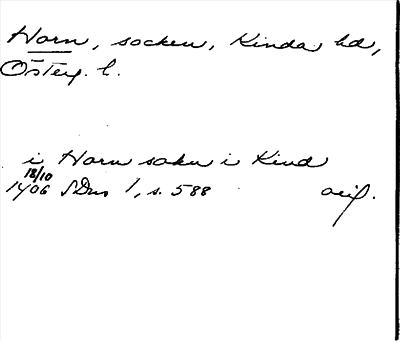 Horn, socken, Kinda hd,
Österg. l.
i Horn sokn i Kind
18/10
1406 SDns 1, s. 588 orig.